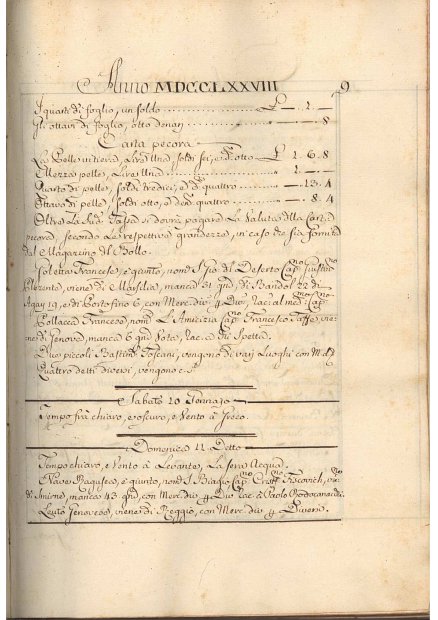 Anno MDCCLXXVIII 9
I quarti di foglio, un soldo £ — . 1 . —
Gli ottavi di foglio, otto denari — . — . 8
Carta pecora
La Pelle intiera, Lira Una, soldi sei, e d. otto £ 1 . 6 . 8
Mezza pelle, Lira Una 1 . — . —
Quarto di pelle, soldi tredici, e d. quattro — . 13 . 4
Ottavo di pelle, soldi otto, e den. quattro — . 8 . 4
Oltre La Sud.a Tassa si dovrà pagare La Valuta della Carta
pecora, secondo Le respettive grandezze, in caso che sia fornita
dal Magazzino del Bollo.
Poletta Francese, è giunto, nom.o S. Gio. di Deserto Cap.no Giustino
, viene di Marsilia, manca 31 gni, di Bandol 22 di
Agay 19, e di Portofino 6, con Merc. div. p. Div. Rac. al med. Cap.no
Pollacca Francese, nom.o L'Amicizia Cap.no Francesco Taffe, vie-
ne di Genova, manca 6 gni Vota, Rac. a chi Spetta.
Due piccoli Bastim. Toscani, vengono di varj Luoghi con M. d.
Quattro detti diversi, vengono c. s.
Sabato 10 Gennajo
Tempo frà chiaro, e oscuro, e Vento à Greco.
Domenica 11 Detto
Tempo chiaro, e Vento à Levante, La sera Acqua.
Nave Ragusea, è giunto, nom.o S. Biagio Cap.no Crist.o Fiscovich, vie.
di Smirne, manca 43 gni, con Merc. div. p. Div. Rac. à Paolo Rodocanacchi.
Leuto Genovese, viene di Reggio, con Merc. div. p. Diversi.